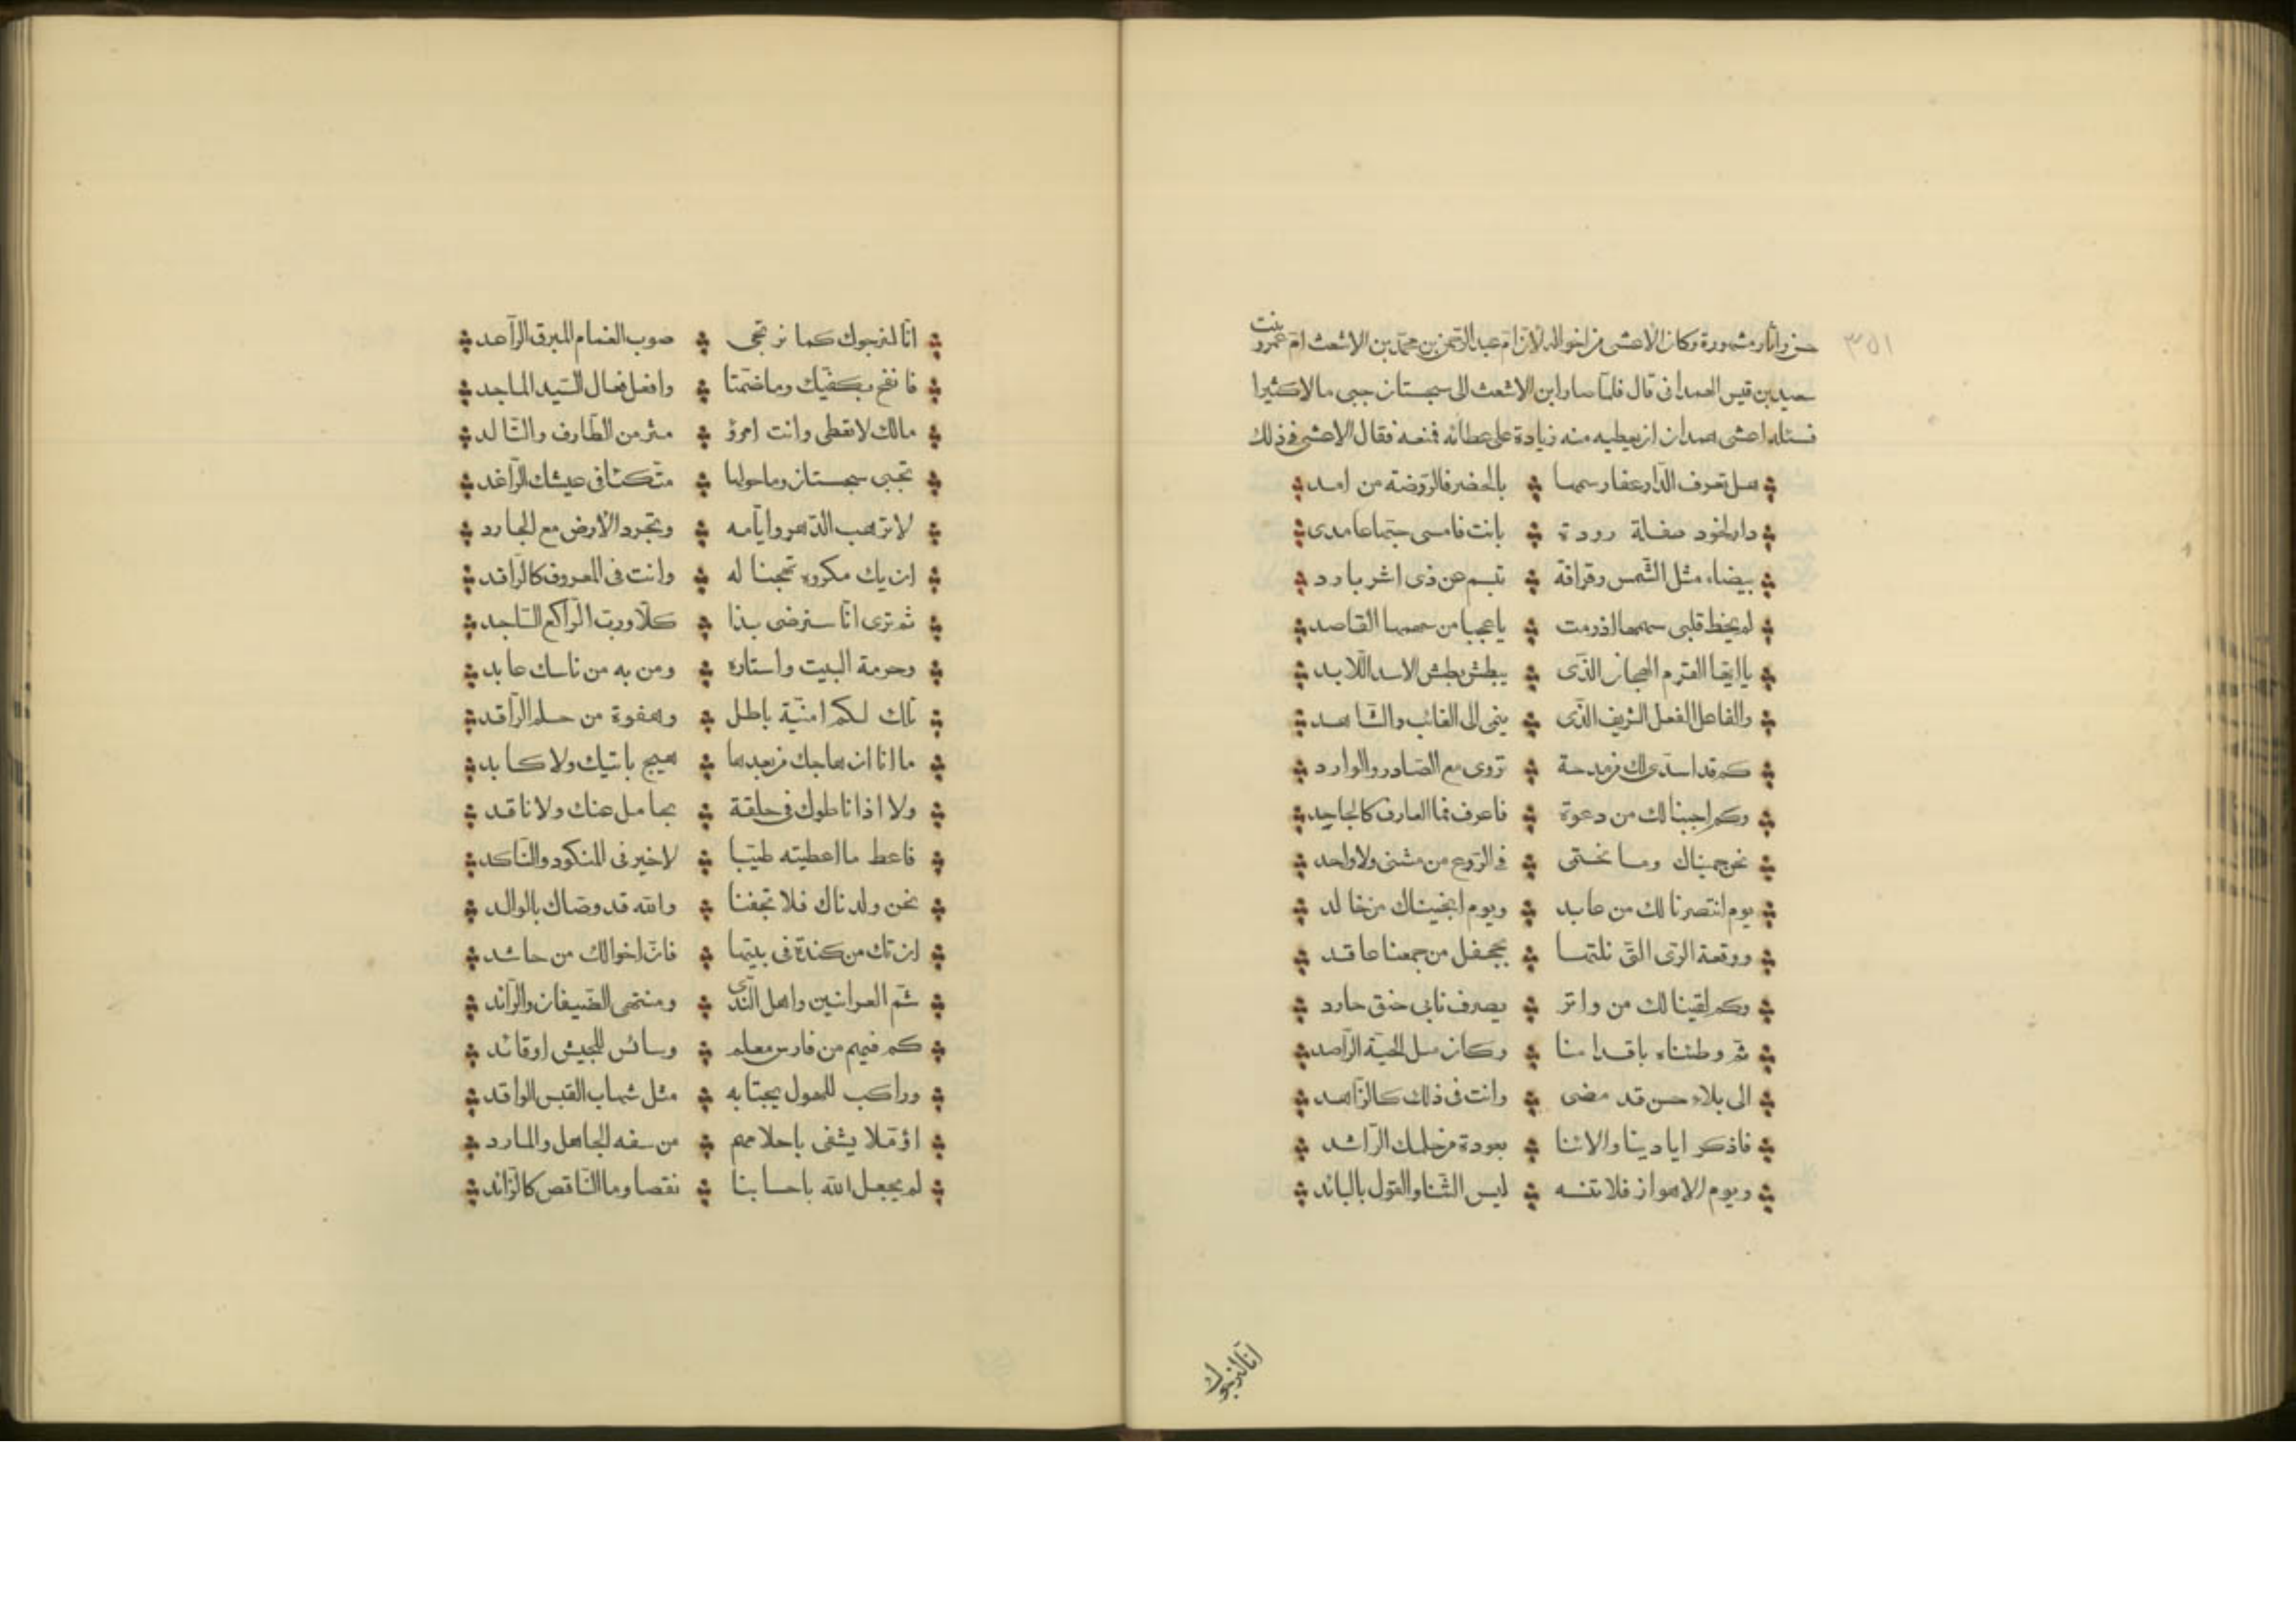 ٣٥١
حسن وآثار مشهورة وكان الأعشى من اخواله لانّ امّ عبد الرّحمن بن محمّد بن الاشعث امّ عمرو بنت
سعيد بن قيس الهمدانى قال فلمّا صار ابن الاشعث الى سجستان جبى مالا كثيرا
فسئله اعشى همدان ان يعطيه منه زيادة على عطائه فمنعه فقال الاعشى فى ذلك
هل تعرف الدّار عفا رسمها بالحضر فالرّوضة من امد
دار لخود طفلة رودة بانت فامسى حبّها عامدى
بيضاء مثل الشّمس رقراقة تبسم عن ذى اشر بارد
لم يخط قلبى سهمها اذ رمت يا عجبا من سهمها القاصد
يا ايّها القرم الهجان الّذى يبطش بطش الاسد اللّابد
والفاعل الفعل الشريف الّذى ينمى الى الغائب والشّاهد
كم قد اسدّى لك من مدحة تروى مع الصّادر والوارد
وكم اجبنا لك من دعوة فاعرف فما العارف كالجاحد
نحن حميناك وما تحتمى فى الرّوع من مثنى ولا واحد
يوم انتصرنا لك من عابد ويوم انجيناك من خالد
ووقعة الرّى الّتى نلتها بجحفل من جمعنا عاقد
وكم لقينا لك من واتر يصرف نابى حنق حارد
ثمّ وطئناه باقدامنا وكان مثل الحيّة الرّاصد
الى بلاء حسن قد مضى وانت فى ذلك كالزّاهد
فاذكر ايادينا والائنا بعودة من حلمك الرّاشد
ويوم الاهواز فلا تنسه ليس الثّنا والقول بالبائد
انّا لنرجوك
انّا لنرجوك كما نرتجى صوب الغمام المبرق الرّاعد
فانفح بكفّيك وما ضمّتا وافعل فعال السّيد الماجد
مالك لا تعطى وانت امرؤ مثر من الطّارف والتّالد
تجبى سجستان وما حولها متّكئا فى عيشك الرّاغد
لا ترهب الدّهر وايّامه وتجرد الارض مع الجارد
ان يك مكروه تهجنا له وانت فى المعروف كالرّاقد
ثم ترى انّا سنرضى بذا كلّا وربّ الرّاكع السّاجد
وحرمة البيت واستاره ومن به من ناسك عابد
تلك لكم امنيّة باطل وهفوة من حلم الرّاقد
ما انا ان هاجك من بعدها هيج باتيك ولا كابد
ولا اذا ناطوك فى حلقة بحامل عنك ولا ناقد
فاعط ما اعطيته طيّبا لا خير فى المنكود والنّاكد
نحن ولدناك فلا تجفنا والله قد وصّاك بالوالد
ان تك من كندة فى بيتها فانّ اخوالك من حاشد
شمّ العرانين واهل النّدى ومنتهى الضّيفان والرّائد
كم فيهم من فارس معلم وسائس للجيش او قائد
وراكب للهول يجتابه مثل شهاب القبس الواقد
او ملا يشفى باحلامهم من سفه الجاهل والمارد
لم يجعل الله باحسابنا نقصا وما النّاقص كالزّائد